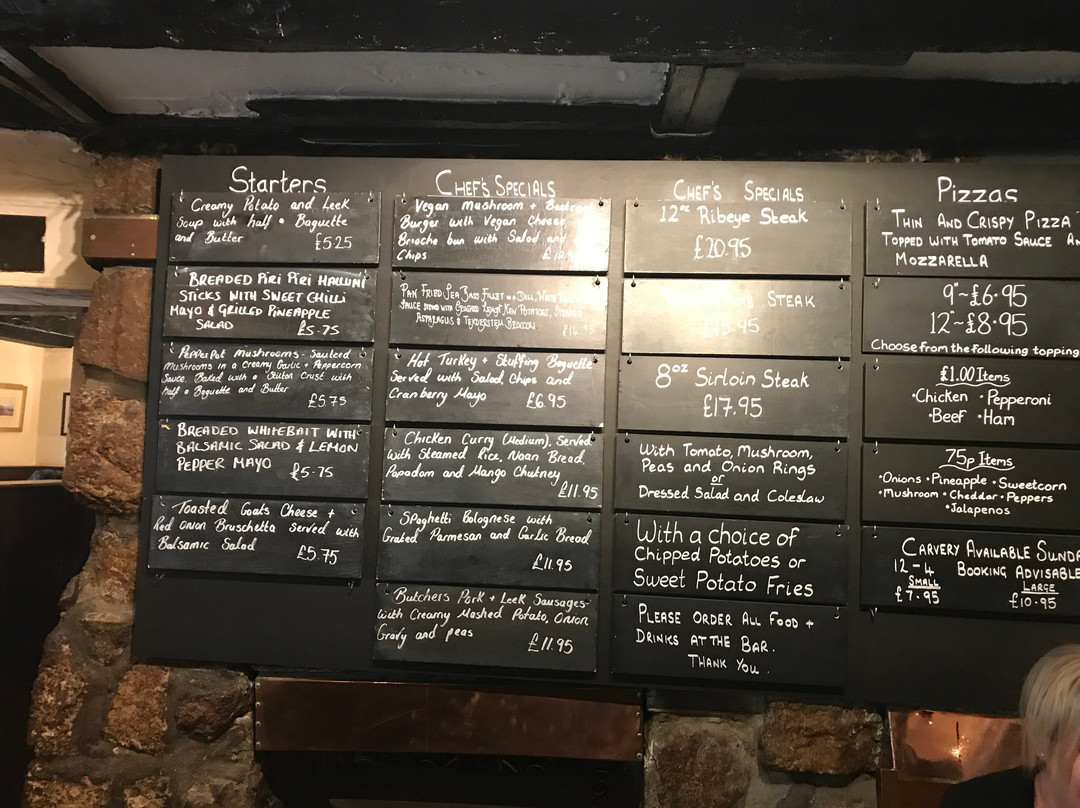 Starters
Creamy Potato and Leek
Soup with half a Baguette
and Butter £5.25
BREADED PIRI PIRI HALLUMI
STICKS WITH SWEET CHILLI
MAYO & GRILLED PINEAPPLE
SALAD £5.75
PepperPot Mushrooms - Sauteed
Mushrooms in a Creamy Garlic + Peppercorn
Sauce. Baked with a Stilton Crust with
half a Baguette and Butter
£5.75
BREADED WHITEBAIT WITH
BALSAMIC SALAD & LEMON
PEPPER MAYO £5.75
Toasted Goats Cheese +
Red Onion Bruschetta served with
Balsamic Salad £5.75
CHEF'S SPECIALS
Vegan Mushroom +
Burger with Vegan Cheese,
Brioche bun with Salad and
Chips
PAN FRIED SEA BASS FILLET IN A DILL, WHITE
SAUCE SERVED WITH NEW POTATOES,
ASPARAGUS & TENDERSTEM BROCCOLI
Hot Turkey + Stuffing Baguette
Served with Salad, Chips and
Cranberry Mayo £6.95
Chicken Curry (Medium), Served
With Steamed Rice, Naan Bread,
Papadom and Mango Chutney
£11.95
Spaghetti Bolognese with
Grated Parmesan and Garlic Bread
£11.95
Butchers Pork + Leek Sausages
with Creamy Mashed Potato, Onion
Gravy and peas £11.95
CHEF'S SPECIALS
12oz Ribeye Steak
£20.95
STEAK
8oz Sirloin Steak
£17.95
With Tomato, Mushroom,
Peas and Onion Rings
or
Dressed Salad and Coleslaw
With a choice of
Chipped Potatoes or
Sweet Potato Fries
PLEASE ORDER ALL FOOD +
DRINKS AT THE BAR.
THANK YOU.
Pizzas
THIN AND CRISPY PIZZA
TOPPED WITH TOMATO SAUCE
MOZZARELLA
9"~£6.95
12"~£8.95
Choose from the following topping
£1.00 Items
•Chicken •Pepperoni
•Beef •Ham
75p Items
•Onions •Pineapple •Sweetcorn
•Mushroom •Cheddar •Peppers
•Jalapenos
CARVERY AVAILABLE SUNDA
12-4 BOOKING ADVISABLE
SMALL LARGE
£7.95 £10.95